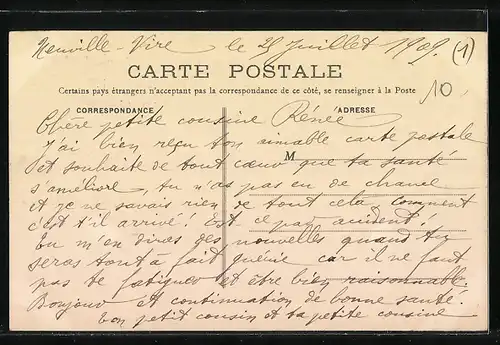 Neuville-Vire le 21 Juillet 1909 (1)
CARTE POSTALE
Certains pays étrangers n'acceptant pas la correspondance de ce côté, se renseigner à la Poste
10
CORRESPONDANCE
ADRESSE
Chère petite cousine Rénée
J'ai bien reçu ton aimable carte postale
M
et souhaite de tout cœur que ta santé
s'améliore, tu n'as pas eu de chance
et je ne savais rien de tout cela, comment
c'est t'il arrivé! Est ce par accident!
Tu m'en diras des nouvelles quand tu
seras tout à fait guérie car il ne faut
pas te fatiguer et être bien raisonnable.
Bonjour et continuation de bonne santé.
ton petit cousin et ta petite cousine